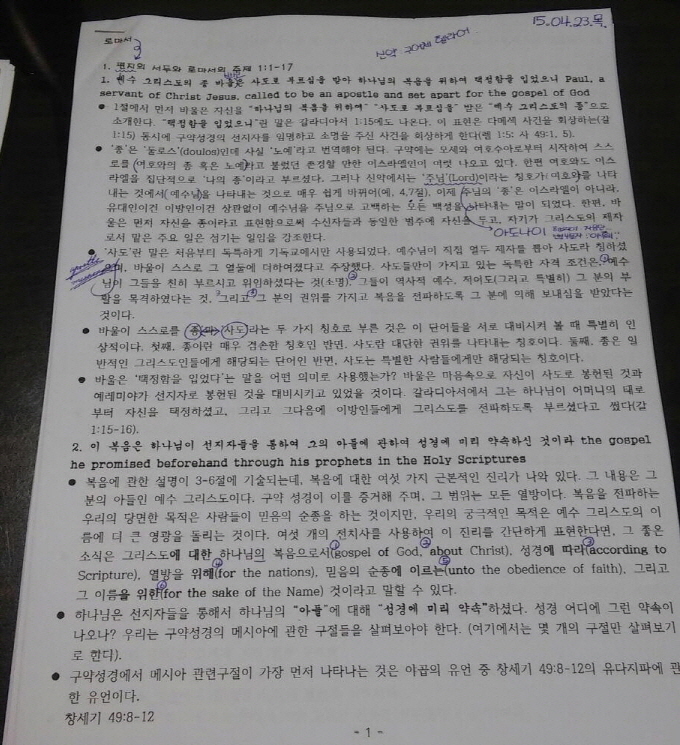 15.04.23.목.
로마서
신약 구어체 헬라어.
1. 편지의 서두와 로마서의 주제 1:1-17
1. 예수 그리스도의 종 바울은 사도로 부르심을 받아 하나님의 복음을 위하여 택정함을 입었으니 Paul, a
servant of Christ Jesus, called to be an apostle and set apart for the gospel of God
● 1절에서 먼저 바울은 자신을 "하나님의 복음을 위하여" "사도로 부르심을" 받은 "예수 그리스도의 종"으로
소개한다. "택정함을 입었으니"란 말은 갈라디아서 1:15에도 나온다. 이 표현은 다메섹 사건을 회상하는(갈
1:15) 동시에 구약성경의 선지자를 임명하고 소명을 주신 사건을 회상하게 한다(렘 1:5; 사 49:1, 5).
● '종'은 '둘로스'(doulos)인데 사실 '노예'라고 번역해야 된다. 구약에는 모세와 여호수아로부터 시작하여 스스
로를 (여호와의 종 혹은 노예)라고 불렀던 존경할 만한 이스라엘인이 여럿 나오고 있다. 한편 여호와도 이스
라엘을 집단적으로 '나의 종'이라고 부르셨다. 그러나 신약에서는 '주님'(Lord)이라는 칭호가 여호와를 나타
내는 것에서 예수님을 나타내는 것으로 매우 쉽게 바뀌어(예, 4,7절), 이제 주님의 '종'은 이스라엘이 아니라,
유대인이건 이방인이건 상관없이 예수님을 주님으로 고백하는 모든 백성을 나타내는 말이 되었다. 한편, 바
울은 먼저 자신을 종이라고 표현함으로써 수신자들과 동일한 범주에 자신을 두고, 자기가 그리스도의 제자
로서 맡은 주요 일은 섬기는 일임을 강조한다.
아도나이
● '사도'란 말은 처음부터 독특하게 기독교에서만 사용되었다. 예수님이 직접 열두 제자를 뽑아 사도라 칭하셨
으며, 바울이 스스로 그 열둘에 더하여졌다고 주장했다. 사도들만이 가지고 있는 독특한 자격 조건은 ①예수
님이 그들을 친히 부르시고 위임하셨다는 것(소명) ② 그들이 역사적 예수, 적어도(그리고 특별히) 그 분의 부
활을 목격하였다는 것, 그리고 ③ 그 분의 권위를 가지고 복음을 전파하도록 그 분에 의해 보내심을 받았다는
것이다.
● 바울이 스스로를 종과 사도라는 두 가지 칭호로 부른 것은 이 단어들을 서로 대비시켜 볼 때 특별히 인
상적이다. 첫째, 종이란 매우 겸손한 칭호인 반면, 사도란 대단한 권위를 나타내는 칭호이다. 둘째, 종은 일
반적인 그리스도인들에게 해당되는 단어인 반면, 사도는 특별한 사람들에게만 해당되는 칭호이다.
● 바울은 '택정함을 입었다'는 말을 어떤 의미로 사용했는가? 바울은 마음속으로 자신이 사도로 봉헌된 것과
예레미야가 선지자로 봉헌된 것을 대비시키고 있었을 것이다. 갈라디아서에서 그는 하나님이 어머니의 태로
부터 자신을 택정하셨고, 그리고 그다음에 이방인들에게 그리스도를 전파하도록 부르셨다고 썼다(갈
1:15-16).
2. 이 복음은 하나님이 선지자들을 통하여 그의 아들에 관하여 성경에 미리 약속하신 것이라 the gospel
he promised beforehand through his prophets in the Holy Scriptures
● 복음에 관한 설명이 3-6절에 기술되는데, 복음에 대한 여섯 가지 근본적인 진리가 나와 있다. 그 내용은 그
분의 아들인 예수 그리스도이다. 구약 성경이 이를 증거해 주며, 그 범위는 모든 열방이다. 복음을 전파하는
우리의 당면한 목적은 사람들이 믿음의 순종을 하는 것이지만, 우리의 궁극적인 목적은 예수 그리스도의 이
름에 더 큰 영광을 돌리는 것이다. 여섯 개의 전치사를 사용하여 이 진리를 간단하게 표현한다면, 그 좋은
소식은 그리스도에 대한 하나님의 복음으로서(gospel of God, about Christ), 성경에 따라(according to
Scripture), 열방을 위해(for the nations), 믿음의 순종에 이르는(unto the obedience of faith), 그리고
그 이름을 위한(for the sake of the Name) 것이라고 말할 수 있다.
● 하나님은 선지자들을 통해서 하나님의 "아들"에 대해 "성경에 미리 약속"하셨다. 성경 어디에 그런 약속이
나오나? 우리는 구약성경의 메시아에 관한 구절들을 살펴보아야 한다. (여기에서는 몇 개의 구절만 살펴보기
로 한다).
● 구약성경에서 메시아 관련구절이 가장 먼저 나타나는 것은 야곱의 유언 중 창세기 49:8-12의 유다지파에 관
한 유언이다.
창세기 49:8-12
- 1 -